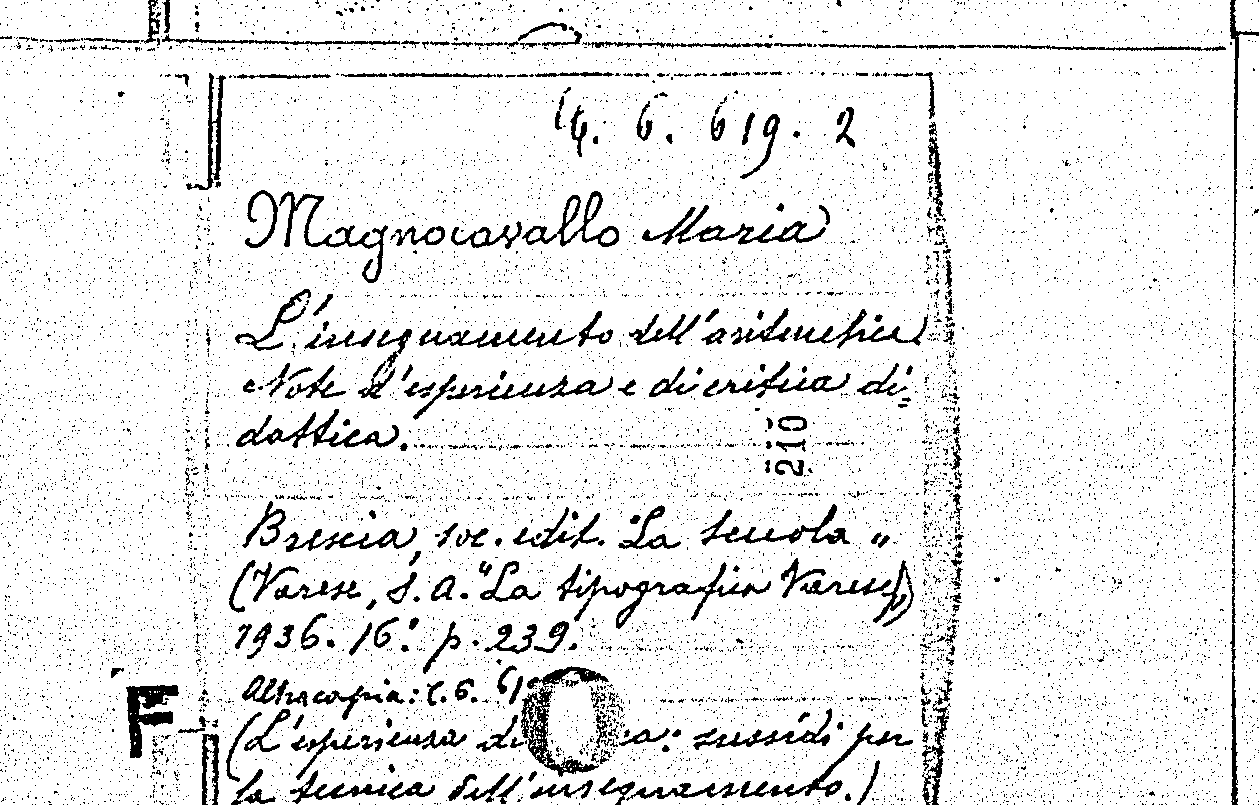 14. 6. 619. 2
Magnocavallo Maria
L'insegnamento dell'aritmetica
Note d'esperienza e di critica di=
dattica.
210
Brescia, soc. edit. "La Scuola"
(Varese, S. A. "La tipografica Varese")
1936. 16º. p. 239.
Altra copia: C. 6.
F
(L'esperienza : sussidi per
la tecnica dell'insegnamento.)